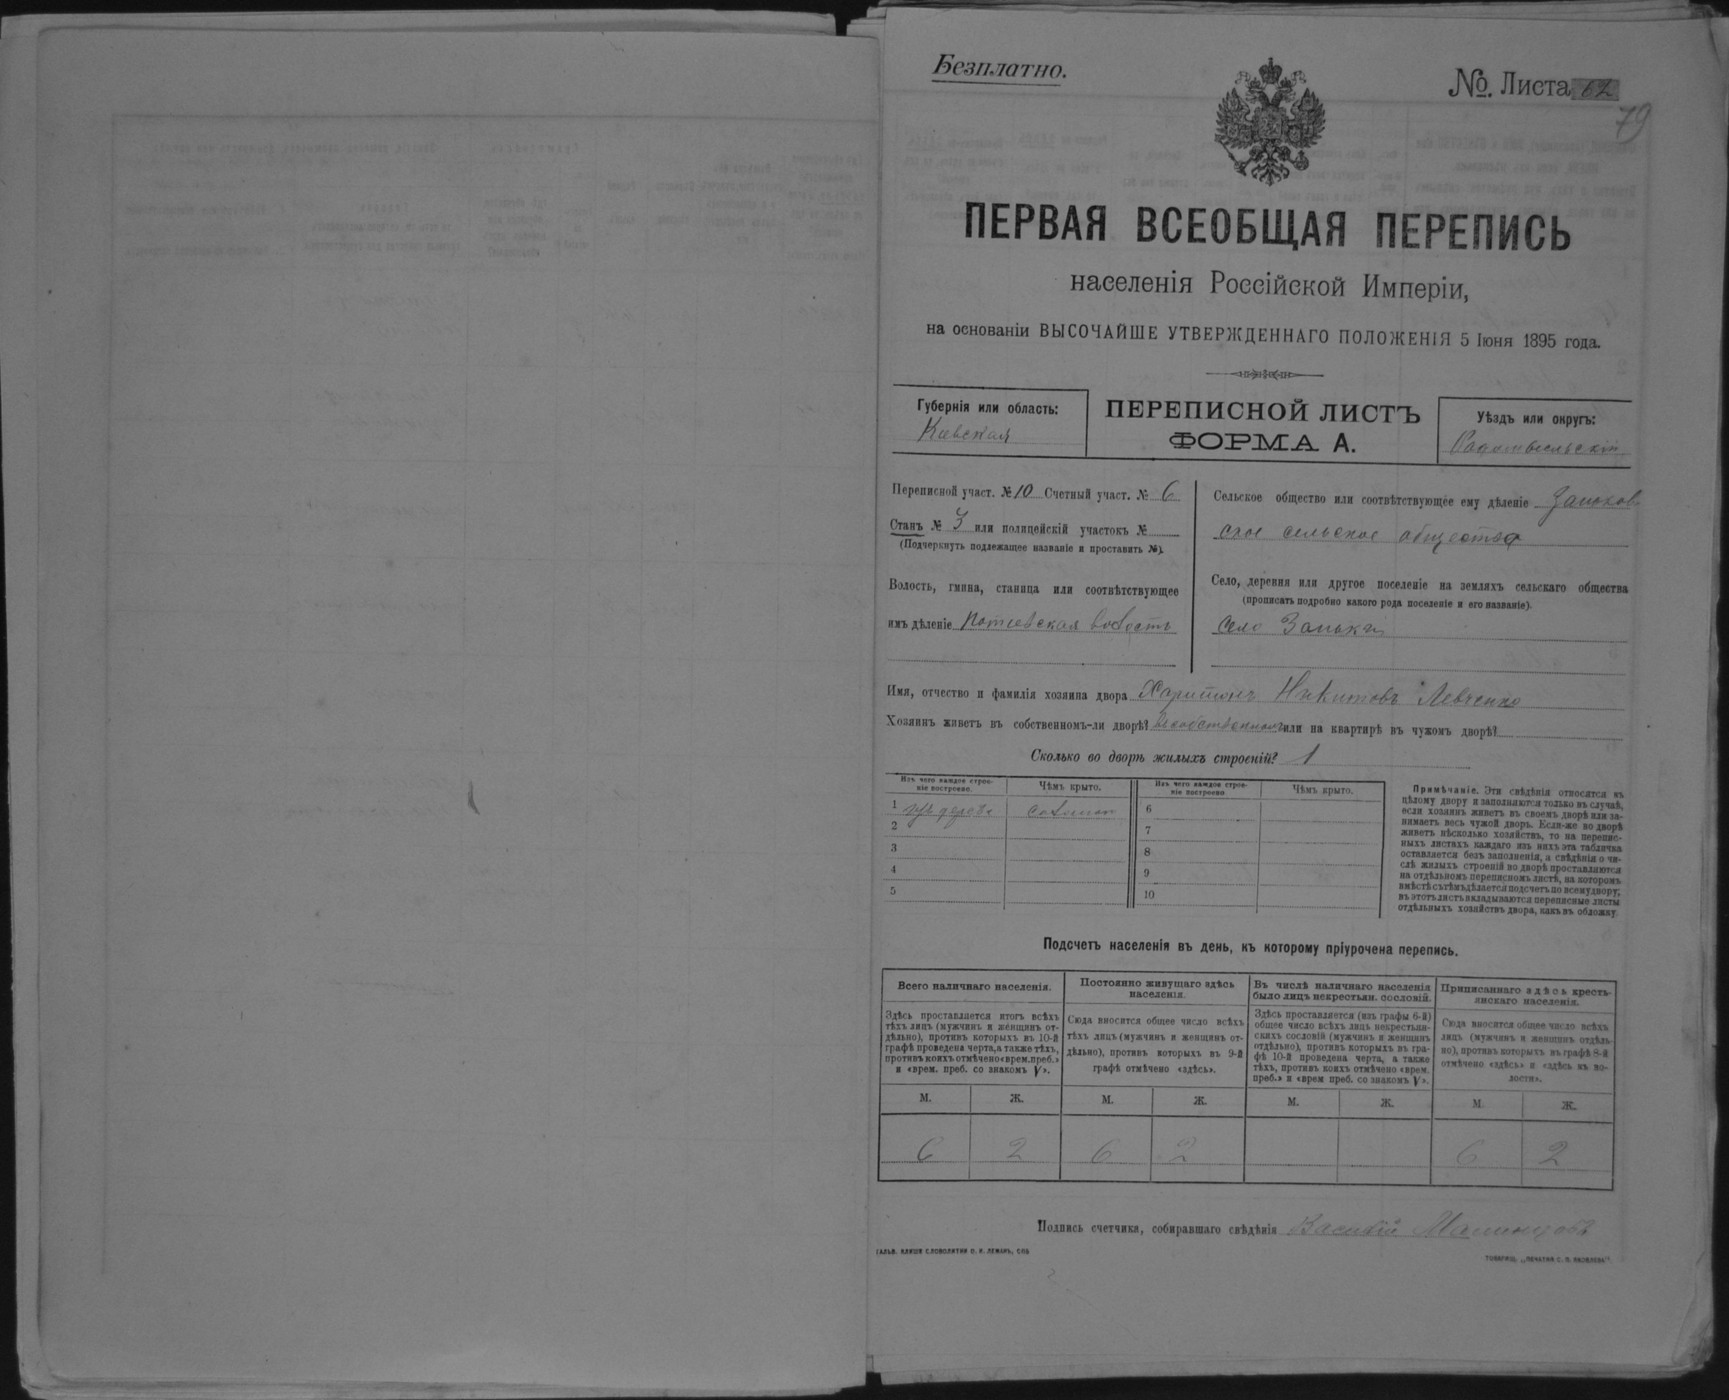 Безплатно.
№. Листа 62
79
ПЕРВАЯ ВСЕОБЩАЯ ПЕРЕПИСЬ
населенія Россійской Имперіи,
на основаніи ВЫСОЧАЙШЕ УТВЕРЖДЕННАГО ПОЛОЖЕНІЯ 5 Іюня 1895 года.
Губернія или область:
Кіевская
ПЕРЕПИСНОЙ ЛИСТЪ
ФОРМА А.
Уѣздъ или округъ:
Радомысльскій
Переписной участ. № 10 Счетный участ. № 6
Станъ № 3 или полицейскій участокъ №
(Подчеркнуть подлежащее названіе и проставить №).
Волость, гмина, станица или соотвѣтствующее
имъ дѣленіе Потіевская волость
Сельское общество или соотвѣтствующее ему дѣленіе Заньков
ское сельское общество
Село, деревня или другое поселеніе на земляхъ сельскаго общества
(прописать подробно какого рода поселеніе и его названіе).
село Заньки
Имя, отчество и фамилія хозяина двора Харитонъ Никитовъ Левченко
Хозяинъ живетъ въ собственномъ-ли дворѣ? въ собственномъ или на квартирѣ въ чужомъ дворѣ?
Сколько во дворѣ жилыхъ строеній? 1
Изъ чего каждое строе-
ніе построено. Чѣмъ крыто. Изъ чего каждое строе-
ніе построено Чѣмъ крыто.
1 изъ дерева соломою 6
2 7
3 8
4 9
5 10
Примѣчаніе. Эти свѣдѣнія относятся къ
цѣлому двору и заполняются только въ случаѣ,
если хозяинъ живетъ въ своемъ дворѣ или за-
нимаетъ весь чужой дворъ. Если-же во дворѣ
живетъ нѣсколько хозяйствъ, то на перепис-
ныхъ листахъ каждаго изъ нихъ эта табличка
оставляется безъ заполненія, а свѣдѣнія о чи-
слѣ жилыхъ строеній во дворѣ проставляются
на отдѣльномъ переписномъ листѣ, на которомъ
вмѣстѣ съ тѣмъ дѣлается подсчетъ по всему двору;
въ этотъ листъ вкладываются переписные листы
отдѣльныхъ хозяйствъ двора, какъ въ обложку.
Подсчетъ населенія въ день, къ которому пріурочена перепись.
Всего наличнаго населенія.
Здѣсь проставляется итогъ всѣхъ
тѣхъ лицъ (мужчинъ и женщинъ от-
дѣльно), противъ которыхъ въ 10-й
графѣ проведена черта, а также тѣхъ,
противъ коихъ отмѣчено «врем. преб.»
и «врем. преб. со знакомъ V».
М. Ж.
6 2
Постоянно живущаго здѣсь
населенія.
Сюда вносится общее число всѣхъ
тѣхъ лицъ (мужчинъ и женщинъ от-
дѣльно), противъ которыхъ въ 9-й
графѣ отмѣчено «здѣсь».
М. Ж.
6 2
Въ числѣ наличнаго населенія
было лицъ некрестьян. сословій.
Здѣсь проставляется (изъ графы 6-й)
общее число всѣхъ лицъ некрестьян-
скихъ сословій (мужчинъ и женщинъ
отдѣльно), противъ которыхъ въ гра-
фѣ 10-й проведена черта, а также
тѣхъ, противъ коихъ отмѣчено «врем.
преб.» и «врем преб. со знакомъ V».
М. Ж.
Приписаннаго здѣсь кресть-
янскаго населенія.
Сюда вносится общее число всѣхъ
лицъ (мужчинъ и женщинъ отдѣль-
но), противъ которыхъ въ графѣ 8-й
отмѣчено «здѣсь» и «здѣсь къ во-
лости».
М. Ж.
6 2
Подпись счетчика, собиравшаго свѣдѣнія Василій
ГАЛЬВ. КЛИШЕ СЛОВОЛИТНИ О. И. ЛЕМАНЪ, СПБ
ТОВАРИЩ. „ПЕЧАТНЯ С. П. ЯКОВЛЕВА“.